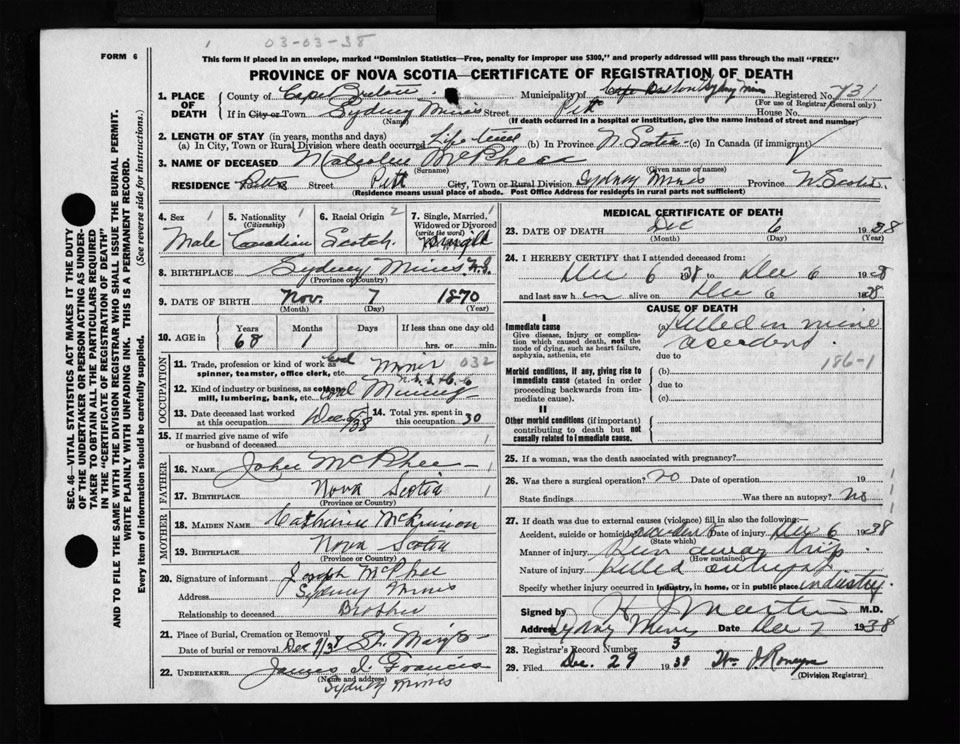 03-03-38
FORM 6
This form if placed in an envelope, marked "Dominion Statistics—Free, penalty for improper use $300," and properly addressed will pass through the mail "FREE"
PROVINCE OF NOVA SCOTIA—CERTIFICATE OF REGISTRATION OF DEATH
SEC. 46—VITAL STATISTICS ACT MAKES IT THE DUTY
OF THE UNDERTAKER OR PERSON ACTING AS UNDER-
TAKER TO OBTAIN ALL THE PARTICULARS REQUIRED
IN THE "CERTIFICATE OF REGISTRATION OF DEATH"
AND TO FILE THE SAME WITH THE DIVISION REGISTRAR WHO SHALL ISSUE THE BURIAL PERMIT.
WRITE PLAINLY WITH UNFADING INK. THIS IS A PERMANENT RECORD.
Every item of information should be carefully supplied. (See reverse side for instructions.)
1. PLACE OF DEATH
County of Cape Breton Municipality of Sydney Mines Registered No. 731
(For use of Registrar General only)
If in City or Town Sydney Mines Street Pitt House No.
(Name) (If death occurred in a hospital or institution, give the name instead of street and number)
2. LENGTH OF STAY (in years, months and days)
(a) In City, Town or Rural Division where death occurred Life time (b) In Province N. Scotia (c) In Canada (if immigrant)
3. NAME OF DECEASED Malcolm McPhee
(Surname) (Given name or names)
RESIDENCE Street Pitt City, Town or Rural Division Sydney Mines Province N Scotia
(Residence means usual place of abode. Post Office Address for residents in rural parts not sufficient)
4. Sex 1 5. Nationality 1 6. Racial Origin 2 7. Single, Married, 1
(Citizenship) Widowed or Divorced
(write the word)
Male Canadian Scotch Single
8. BIRTHPLACE Sydney Mines N.S.
(Province or Country)
9. DATE OF BIRTH Nov. 7 1870
(Month) (Day) (Year)
10. AGE in Years Months Days If less than one day
68 1 hrs. or min.
OCCUPATION
11. Trade, profession or kind of work as Coal Miner 032
spinner, teamster, office clerk, etc.
12. Kind of industry or business, as cotton
mill, lumbering, bank, etc. Coal Mining
13. Date deceased last worked at this occupation Dec 6 1938
14. Total yrs. spent in this occupation 30
15. If married give name of wife
or husband of deceased 1
FATHER
16. NAME John McPhee 1
17. BIRTHPLACE Nova Scotia 1
(Province or Country)
MOTHER
18. MAIDEN NAME Catherine McKinnon
19. BIRTHPLACE Nova Scotia
(Province or Country)
20. Signature of informant Joseph McPhee
Address Sydney Mines
Relationship to deceased Brother
21. Place of Burial, Cremation or Removal
Date of burial or removal Dec 9/38
22. UNDERTAKER James J. Francis
(Name and address)
Sydney Mines
MEDICAL CERTIFICATE OF DEATH
23. DATE OF DEATH Dec 6 1938
(Month) (Day) (Year)
24. I HEREBY CERTIFY that I attended deceased from:
Dec 6 38 to Dec 6 1938
and last saw h im alive on Dec 6 1938
CAUSE OF DEATH
I
Immediate cause (a) Killed in mine
Give disease, injury or complica-
tion which caused death, not the accident.
mode of dying, such as heart failure,
asphyxia, asthenia, etc due to 186-1
Morbid conditions, if any, giving rise to (b)
immediate cause (stated in order due to
proceeding backwards from im-
mediate cause). (c)
II
Other morbid conditions (if important)
contributing to death but not
causally related to immediate cause.
25. If a woman, was the death associated with pregnancy?
26. Was there a surgical operation? no Date of operation 19
State findings Was there an autopsy? no
27. If death was due to external causes (violence) fill in also the following:—
Accident, suicide or homicide accident Date of injury Dec 6 1938
(State which)
Manner of injury Run away trip
(How sustained)
Nature of injury Killed outright
Specify whether injury occurred in industry, in home, or in public place industry
Signed by H J Martin M.D.
Address Sydney Mines Date Dec 7 1938
28. Registrar's Record Number 3
29. Filed Dec. 29 1938
(Division Registrar)